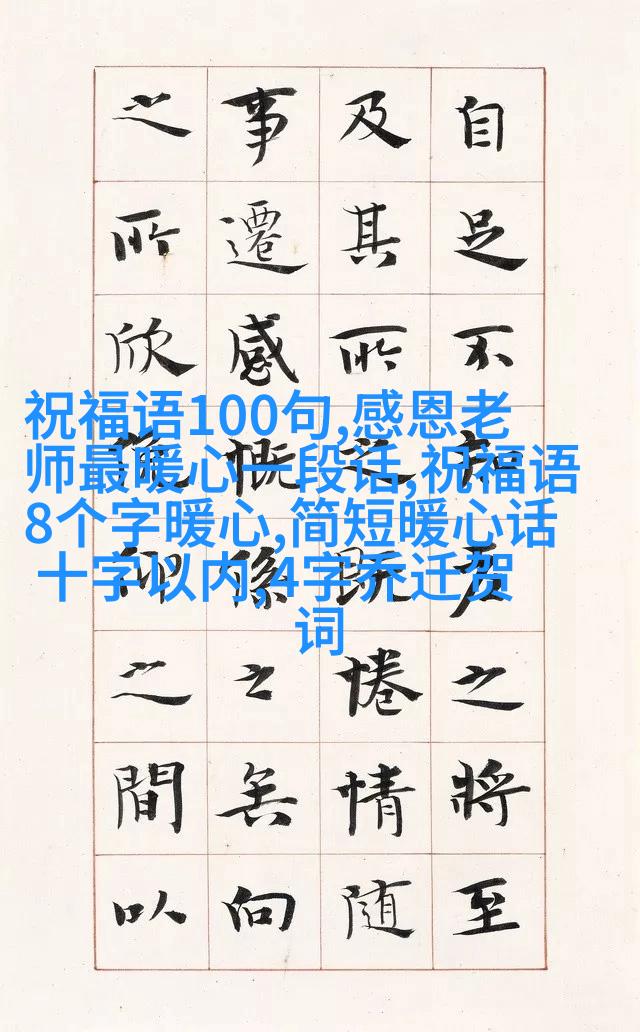 自足不老之將至
及其所之既惓情隨
事遷感慨係之矣向
之所欣仰之間以
祝福语100句,感恩老
师最暖心一段话,祝福语
8个字暖心,简短暖心话
十字以内,4字乔迁贺
词